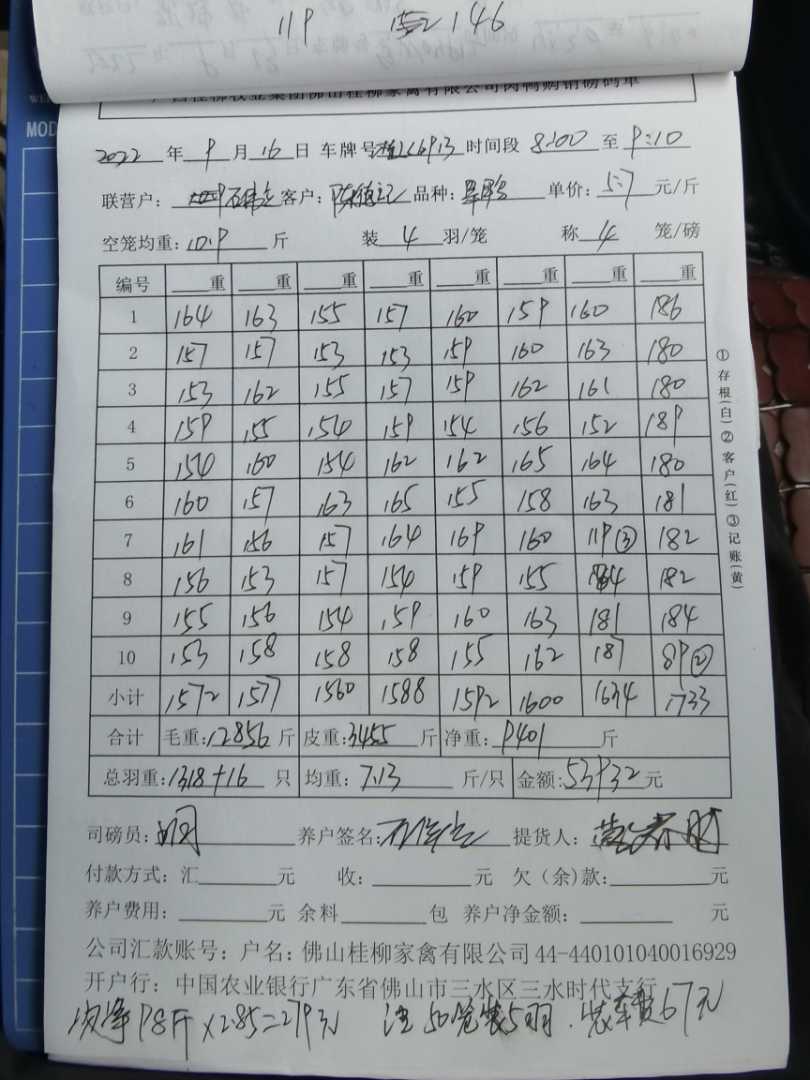 11P 152 146
广西桂柳牧业集团佛山桂柳家禽有限公司肉鸭购销磅码单
2022 年 9 月 16 日 车牌号 时间段 8:00 至 9:10
联营户: 客户: 品种: 单价: 5.7 元/斤
空笼均重: 10.9 斤 装 4 羽/笼 称 4 笼/磅
编号 重 重 重 重 重 重 重 重
1 164 163 155 157 160 159 160 186
2 157 157 153 153 159 160 163 180
3 153 162 155 157 159 162 161 180
4 159 155 154 159 154 156 152 189
5 154 160 154 162 162 165 164 180
6 160 157 163 165 155 158 163 181
7 161 156 157 164 169 160 119③ 182
8 156 153 157 154 159 155 184 182
9 155 156 154 159 160 163 181 184
10 153 158 158 158 155 162 187 89②
小计 1572 1577 1560 1588 1592 1600 1634 1733
合计 毛重: 12856 斤 皮重: 3455 斤 净重: 9401 斤
总羽重: 1318+16 只 均重: 7.13 斤/只 金额: 53932 元
司磅员: 养户签名: 提货人:
付款方式: 汇 元 收: 元 欠(余)款: 元
养户费用: 元 余料 包 养户净金额: 元
公司汇款账号: 户名: 佛山桂柳家禽有限公司 44-440101040016929
开户行: 中国农业银行广东省佛山市三水区三水时代支行
次净98斤×2.85=279元 注50笼装5羽. 装车费67元
①存根(白)②客户(红)③记账(黄)